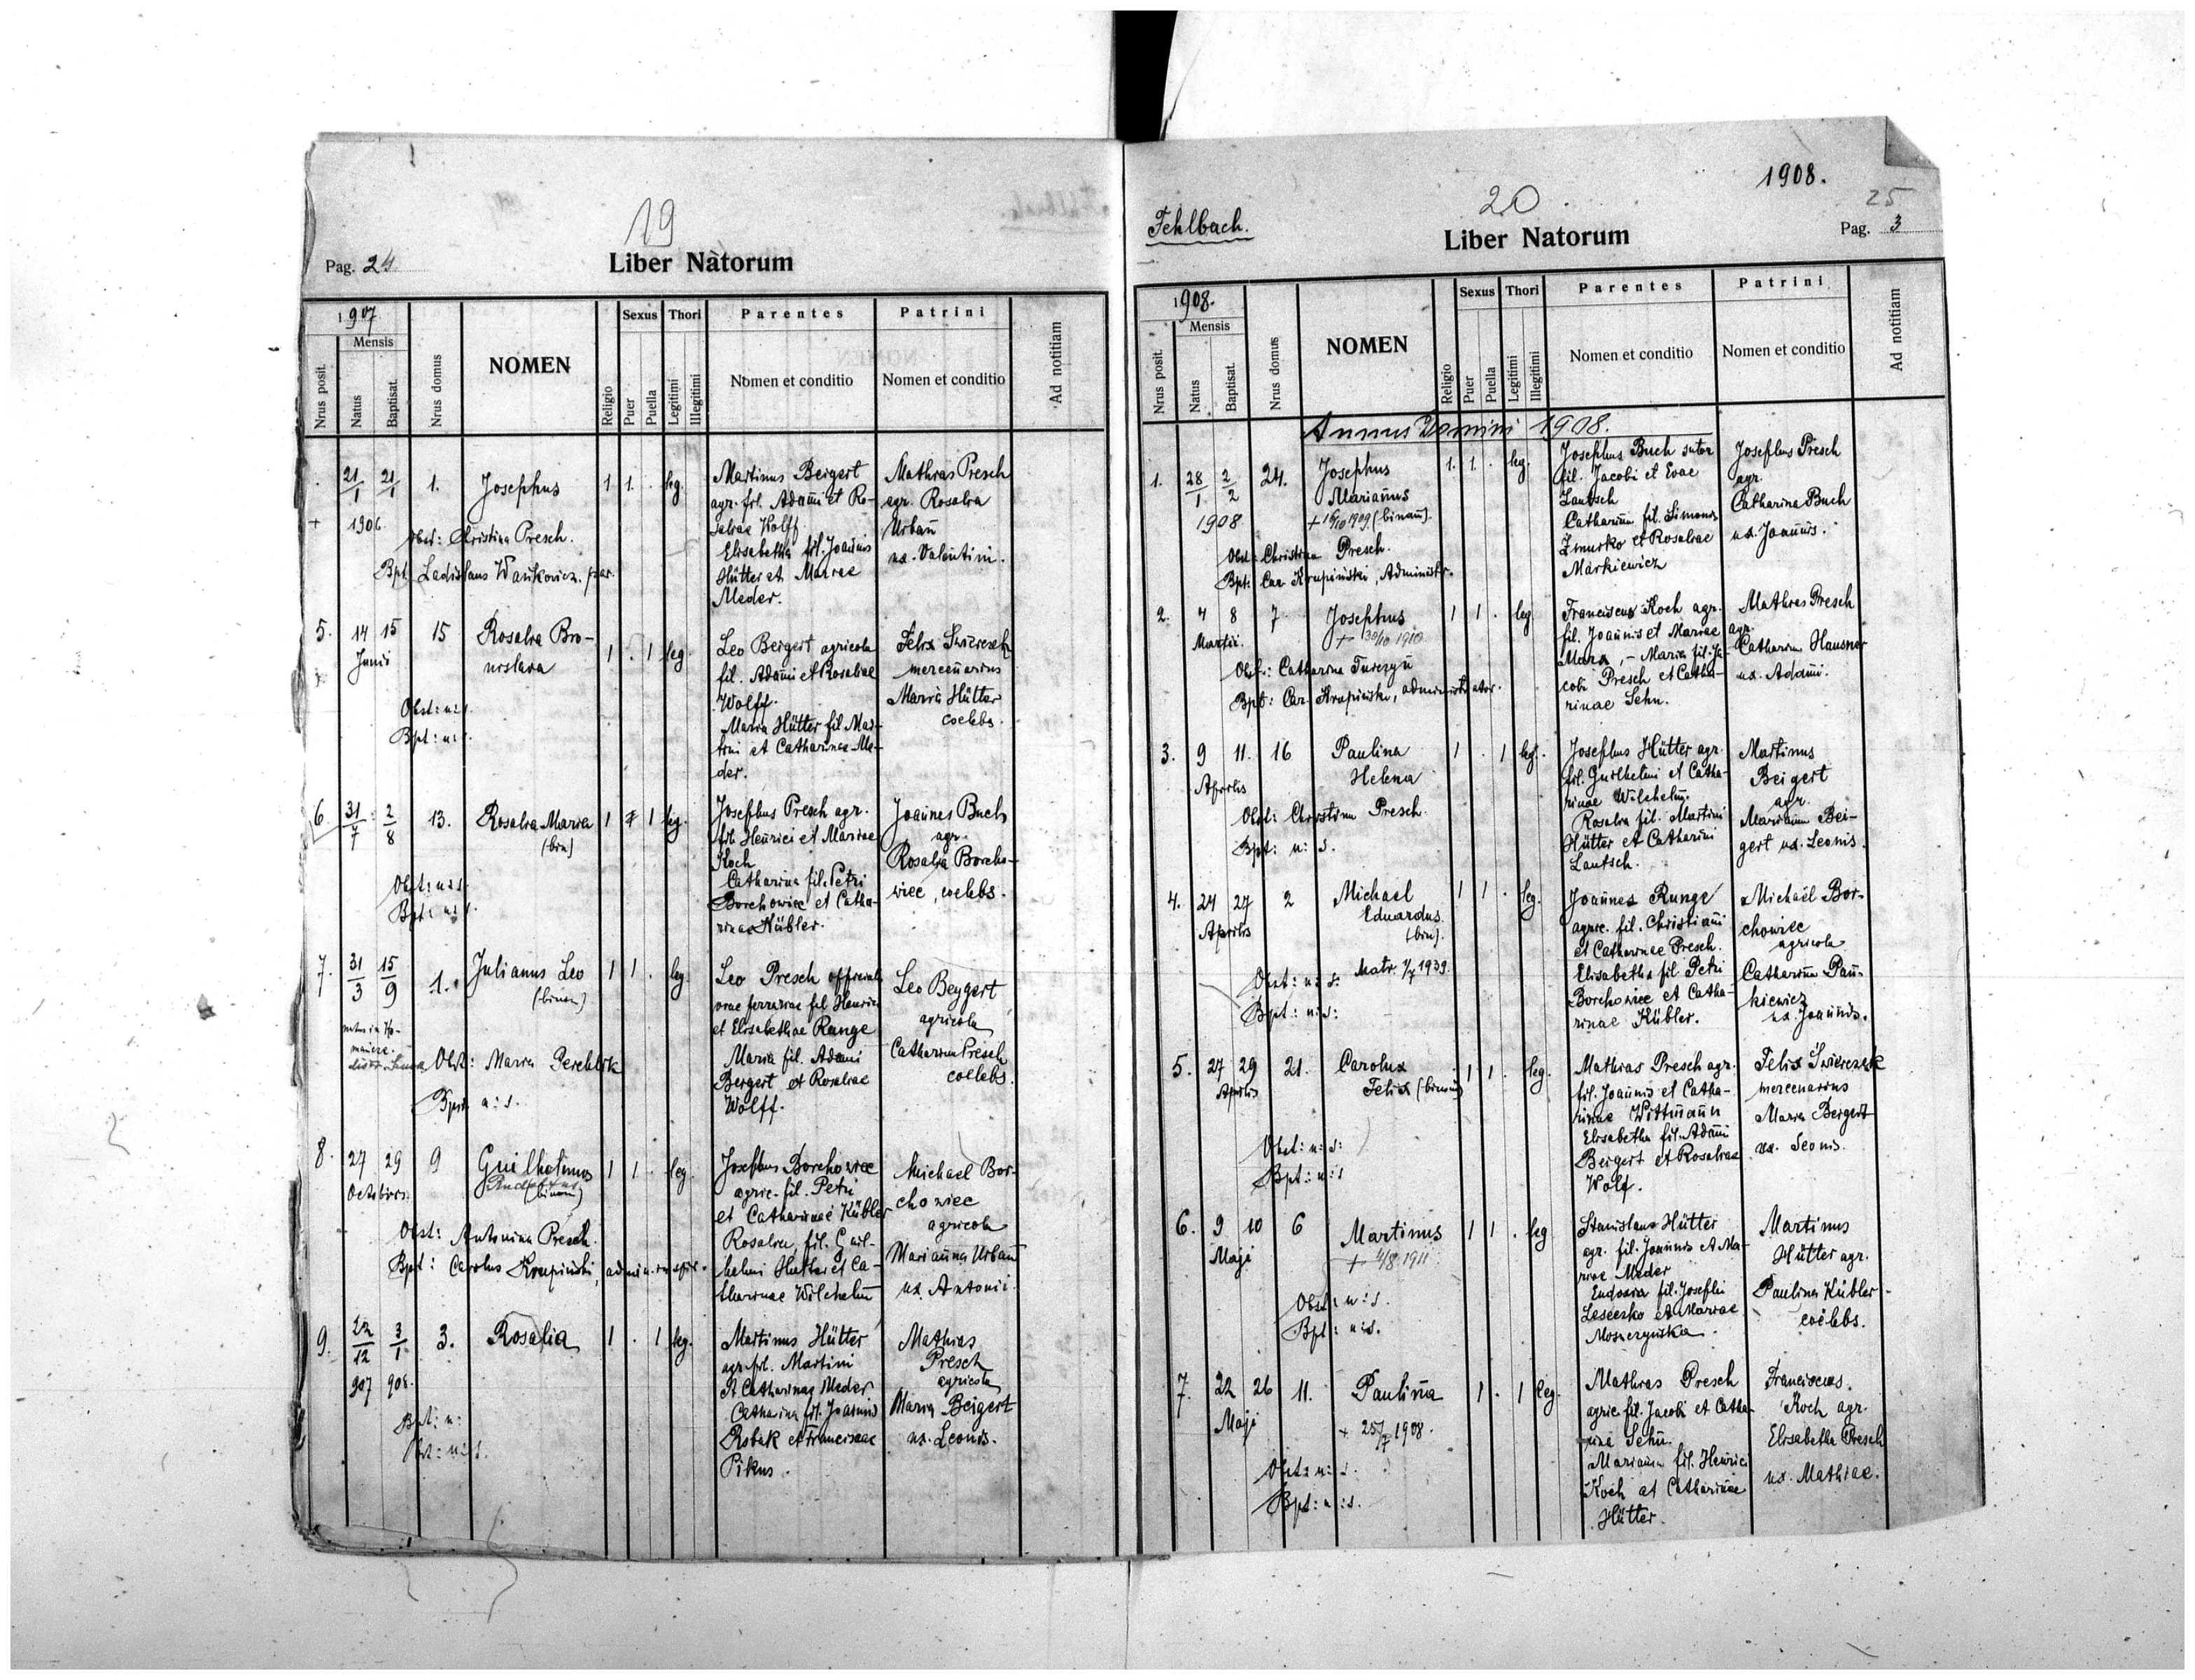 19
Pag. 24
Liber Natorum
1907
Mensis
Nrus posit.
Natus
Baptisat.
Nrus domus
NOMEN
Religio
Sexus
Puer
Puella
Thori
Legitimi
Illegitimi
Parentes
Nomen et conditio
Patrini
Nomen et conditio
Ad notitiam
21/1 21/1 1. Josephus 1 1. . leg.
+ 1906
Obst: Christina Presch.
Bpt Ladislaus Wańkowicz, par.
Martinus Beigert
agr. fil. Adami et Ro-
saliae Wolff
Elisabetha fil. Joannis
Hütter et Mariae
Meder.
Mathias Presch
agr. Rosalia
Urban
ux. Valentini.
5. 14 15 15 Rosalia Bro- 1 . 1 leg.
Junii
nislava
Obst: u: s.
Bpt: u: s.
Leo Beigert agricola
fil. Adami et Rosaliae
Wolff.
Maria Hütter fil Mar-
tini et Catharinae Me-
der.
Felix Świerczek
mercenarius
Maria Hütter
coelebs.
6. 31/7 2/8 13. Rosalia Maria 1 1 leg.
(bin)
Obst: u: s.
Bpt: u: s.
Josephus Presch agr.
fil. Henrici et Mariae
Koch
Catharina fil. Petri
Borchowiec et Catha-
rinae Kübler.
Joannes Buch
agr.
Rosalia Borcho-
wiec, coelebs.
7. 31/3 15/9 1. Julianus Leo 1 1 . leg
(binom)
Obst: Maria Perchlik
Bpt u: s.
Leo Presch
viae ferrariae fil Henrici
et Elisabethae Runge
Maria fil. Adami
Bergert et Rosaliae
Wolff.
Leo Beygert
agricola
Catharina Presch
coelebs.
8. 27 29 9 Guilhelmus 1 1 . leg
Octobris.
(binom)
Obst: Antonina Presch.
Bpt: Carolus Krupiński,
Josephus Borchowiec
agric. fil. Petri
et Catharinae Kübler
Rosalia, fil. Guil-
helmi Hutter et Ca-
tharinae Wilchelm
Michael Bor-
chowiec
agricola
Marianna Urban
ux. Antonii.
9. 22/12 3/1 3. Rosalia 1 . 1 leg.
907 908.
Bpt: u:
Obst: u: s.
Martinus Hütter
agr. fil. Martini
et Catharinae Meder
Catharina fil. Joannis
Robak et Franciscae
Pikus.
Mathias
Presch
agricola
Maria Beigert
ux. Leonis.
1908.
20
25
Fehlbach.
Liber Natorum
Pag. 3
1908.
Mensis
Nrus posit.
Natus
Baptisat.
Nrus domus
NOMEN
Religio
Sexus
Puer
Puella
Thori
Legitimi
Illegitimi
Parentes
Nomen et conditio
Patrini
Nomen et conditio
Ad notitiam
Annus Domini 1908.
1. 28/1 2/2 24. Josephus 1. 1. . leg.
Marianus
1908
+ 16/10 1909. (binom).
Obst: Christina Presch.
Bpt: Car. Krupiński, Administr.
Josephus Buch sutor
fil. Jacobi et Evae
Lautsch
Catharina fil. Simonis
Żmurko et Rosaliae
Markiewicz
Josephus Presch
agr.
Catharina Buch
ux. Joannis.
2. 4 8 7 Josephus 1 1 . leg
Martii.
+ 30/10 1910
Obst: Catharina Turczyn
Bpt: Car. Krupiński, administrator.
Franciscus Koch agr.
fil. Joannis et Mariae
Marx, - Maria fil. Ja-
cobi Presch et Catha-
rinae Sehn.
Mathias Presch
agr.
Catharina Hausner
ux. Adami.
3. 9 11. 16 Paulina 1 . 1 leg.
Aprilis
Helena
Obst: Christina Presch.
Bpt: u: s.
Josephus Hütter agr.
fil. Guilhelmi et Catha-
rinae Wilchelm.
Rosalia fil. Martini
Hütter et Catharini
Lautsch.
Martinus
Beigert
agr.
Marianna Bei-
gert ux. Leonis.
4. 24 27 2 Michael 1 1 . leg.
Aprilis
Eduardus.
(bin).
Matr. 1/7 1939.
Obst: u: s:
Bpt: u: s:
Joannes Runge
agric. fil. Christiani
et Catharinae Presch.
Elisabetha fil Petri
Borchowiec et Catha-
rinae Kübler.
Michaël Bor-
chowiec
agricola
Catharina Pań-
kiewicz
ux. Joannis.
5. 27 29 21. Carolus 1 1 . leg.
Aprilis
Felix (binom)
Obst: u: s:
Bpt: u: s
Mathias Presch agr.
fil. Joannis et Catha-
rinae Wittmann
Elisabetha fil. Adami
Beigert et Rosaliae
Wolf.
Felix Świerczek
mercenarius
Maria Bergert
ux. Leonis.
6. 9 10 6 Martinus 1 1 . leg
Maji
+ 4/8 1911
Obst: u: s.
Bpt: u: s.
Stanislaus Hütter
agr. fil. Joannis et Ma-
riae Meder
Eudoxia fil. Josephi
Leseczko et Mariae
Moszczyńska.
Martinus
Hütter agr.
Paulina Kübler
coelebs.
7. 22 26 11. Paulina 1 . 1 leg.
Maji
+ 25/7 1908.
Obst: u: s.
Bpt: u: s.
Mathias Presch
agric. fil. Jacobi et Catha-
rina Sehn.
Marianna fil. Henrici
Koch et Catharinae
Hütter.
Franciscus
Koch agr.
Elisabetha Presch
ux. Mathiae.